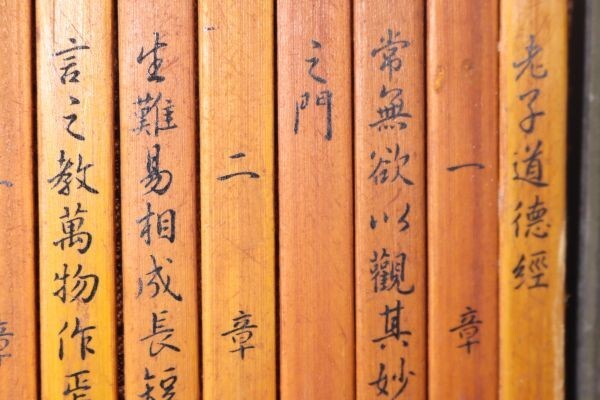 老子道德經
一章
常無欲以觀其妙
之門
二章
生難易相成長短
言之教萬物作焉
章